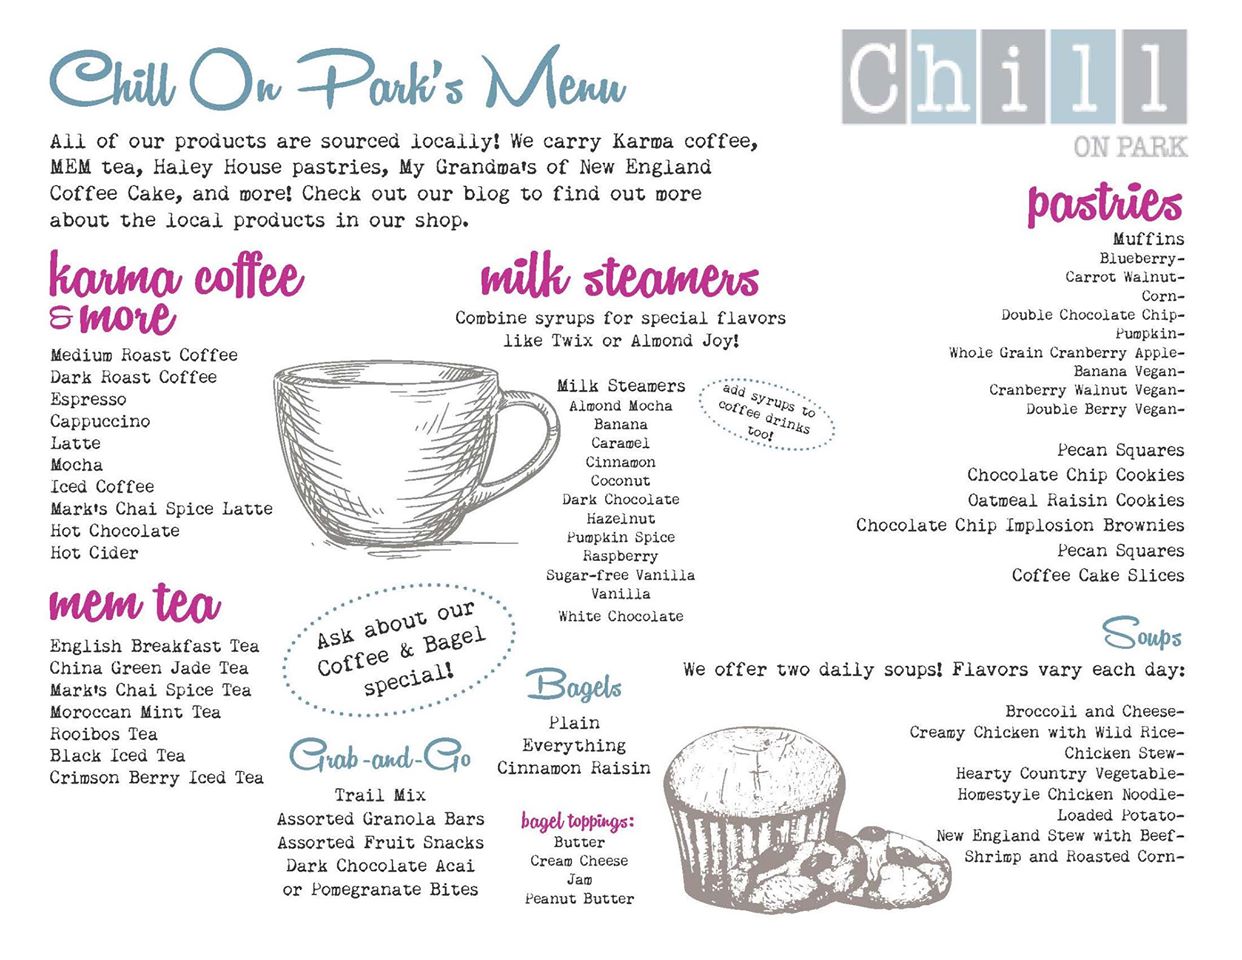 Chill On Park's Menu
Chill
ON PARK
All of our products are sourced locally! We carry Karma coffee,
MEM tea, Haley House pastries, My Grandma's of New England
Coffee Cake, and more! Check out our blog to find out more
about the local products in our shop.
karma coffee
& more
Medium Roast Coffee
Dark Roast Coffee
Espresso
Cappuccino
Latte
Mocha
Iced Coffee
Mark's Chai Spice Latte
Hot Chocolate
Hot Cider
mem tea
English Breakfast Tea
China Green Jade Tea
Mark's Chai Spice Tea
Moroccan Mint Tea
Rooibos Tea
Black Iced Tea
Crimson Berry Iced Tea
Ask about our
Coffee & Bagel
special!
Grab-and-Go
Trail Mix
Assorted Granola Bars
Assorted Fruit Snacks
Dark Chocolate Acai
or Pomegranate Bites
milk steamers
Combine syrups for special flavors
like Twix or Almond Joy!
Milk Steamers
Almond Mocha
Banana
Caramel
Cinnamon
Coconut
Dark Chocolate
Hazelnut
Pumpkin Spice
Raspberry
Sugar-free Vanilla
Vanilla
White Chocolate
add syrups to
coffee drinks
too!
Bagels
Plain
Everything
Cinnamon Raisin
bagel toppings:
Butter
Cream Cheese
Jam
Peanut Butter
pastries
Muffins
Blueberry-
Carrot Walnut-
Corn-
Double Chocolate Chip-
Pumpkin-
Whole Grain Cranberry Apple-
Banana Vegan-
Cranberry Walnut Vegan-
Double Berry Vegan-
Pecan Squares
Chocolate Chip Cookies
Oatmeal Raisin Cookies
Chocolate Chip Implosion Brownies
Pecan Squares
Coffee Cake Slices
Soups
We offer two daily soups! Flavors vary each day:
Broccoli and Cheese-
Creamy Chicken with Wild Rice-
Chicken Stew-
Hearty Country Vegetable-
Homestyle Chicken Noodle-
Loaded Potato-
New England Stew with Beef-
Shrimp and Roasted Corn-